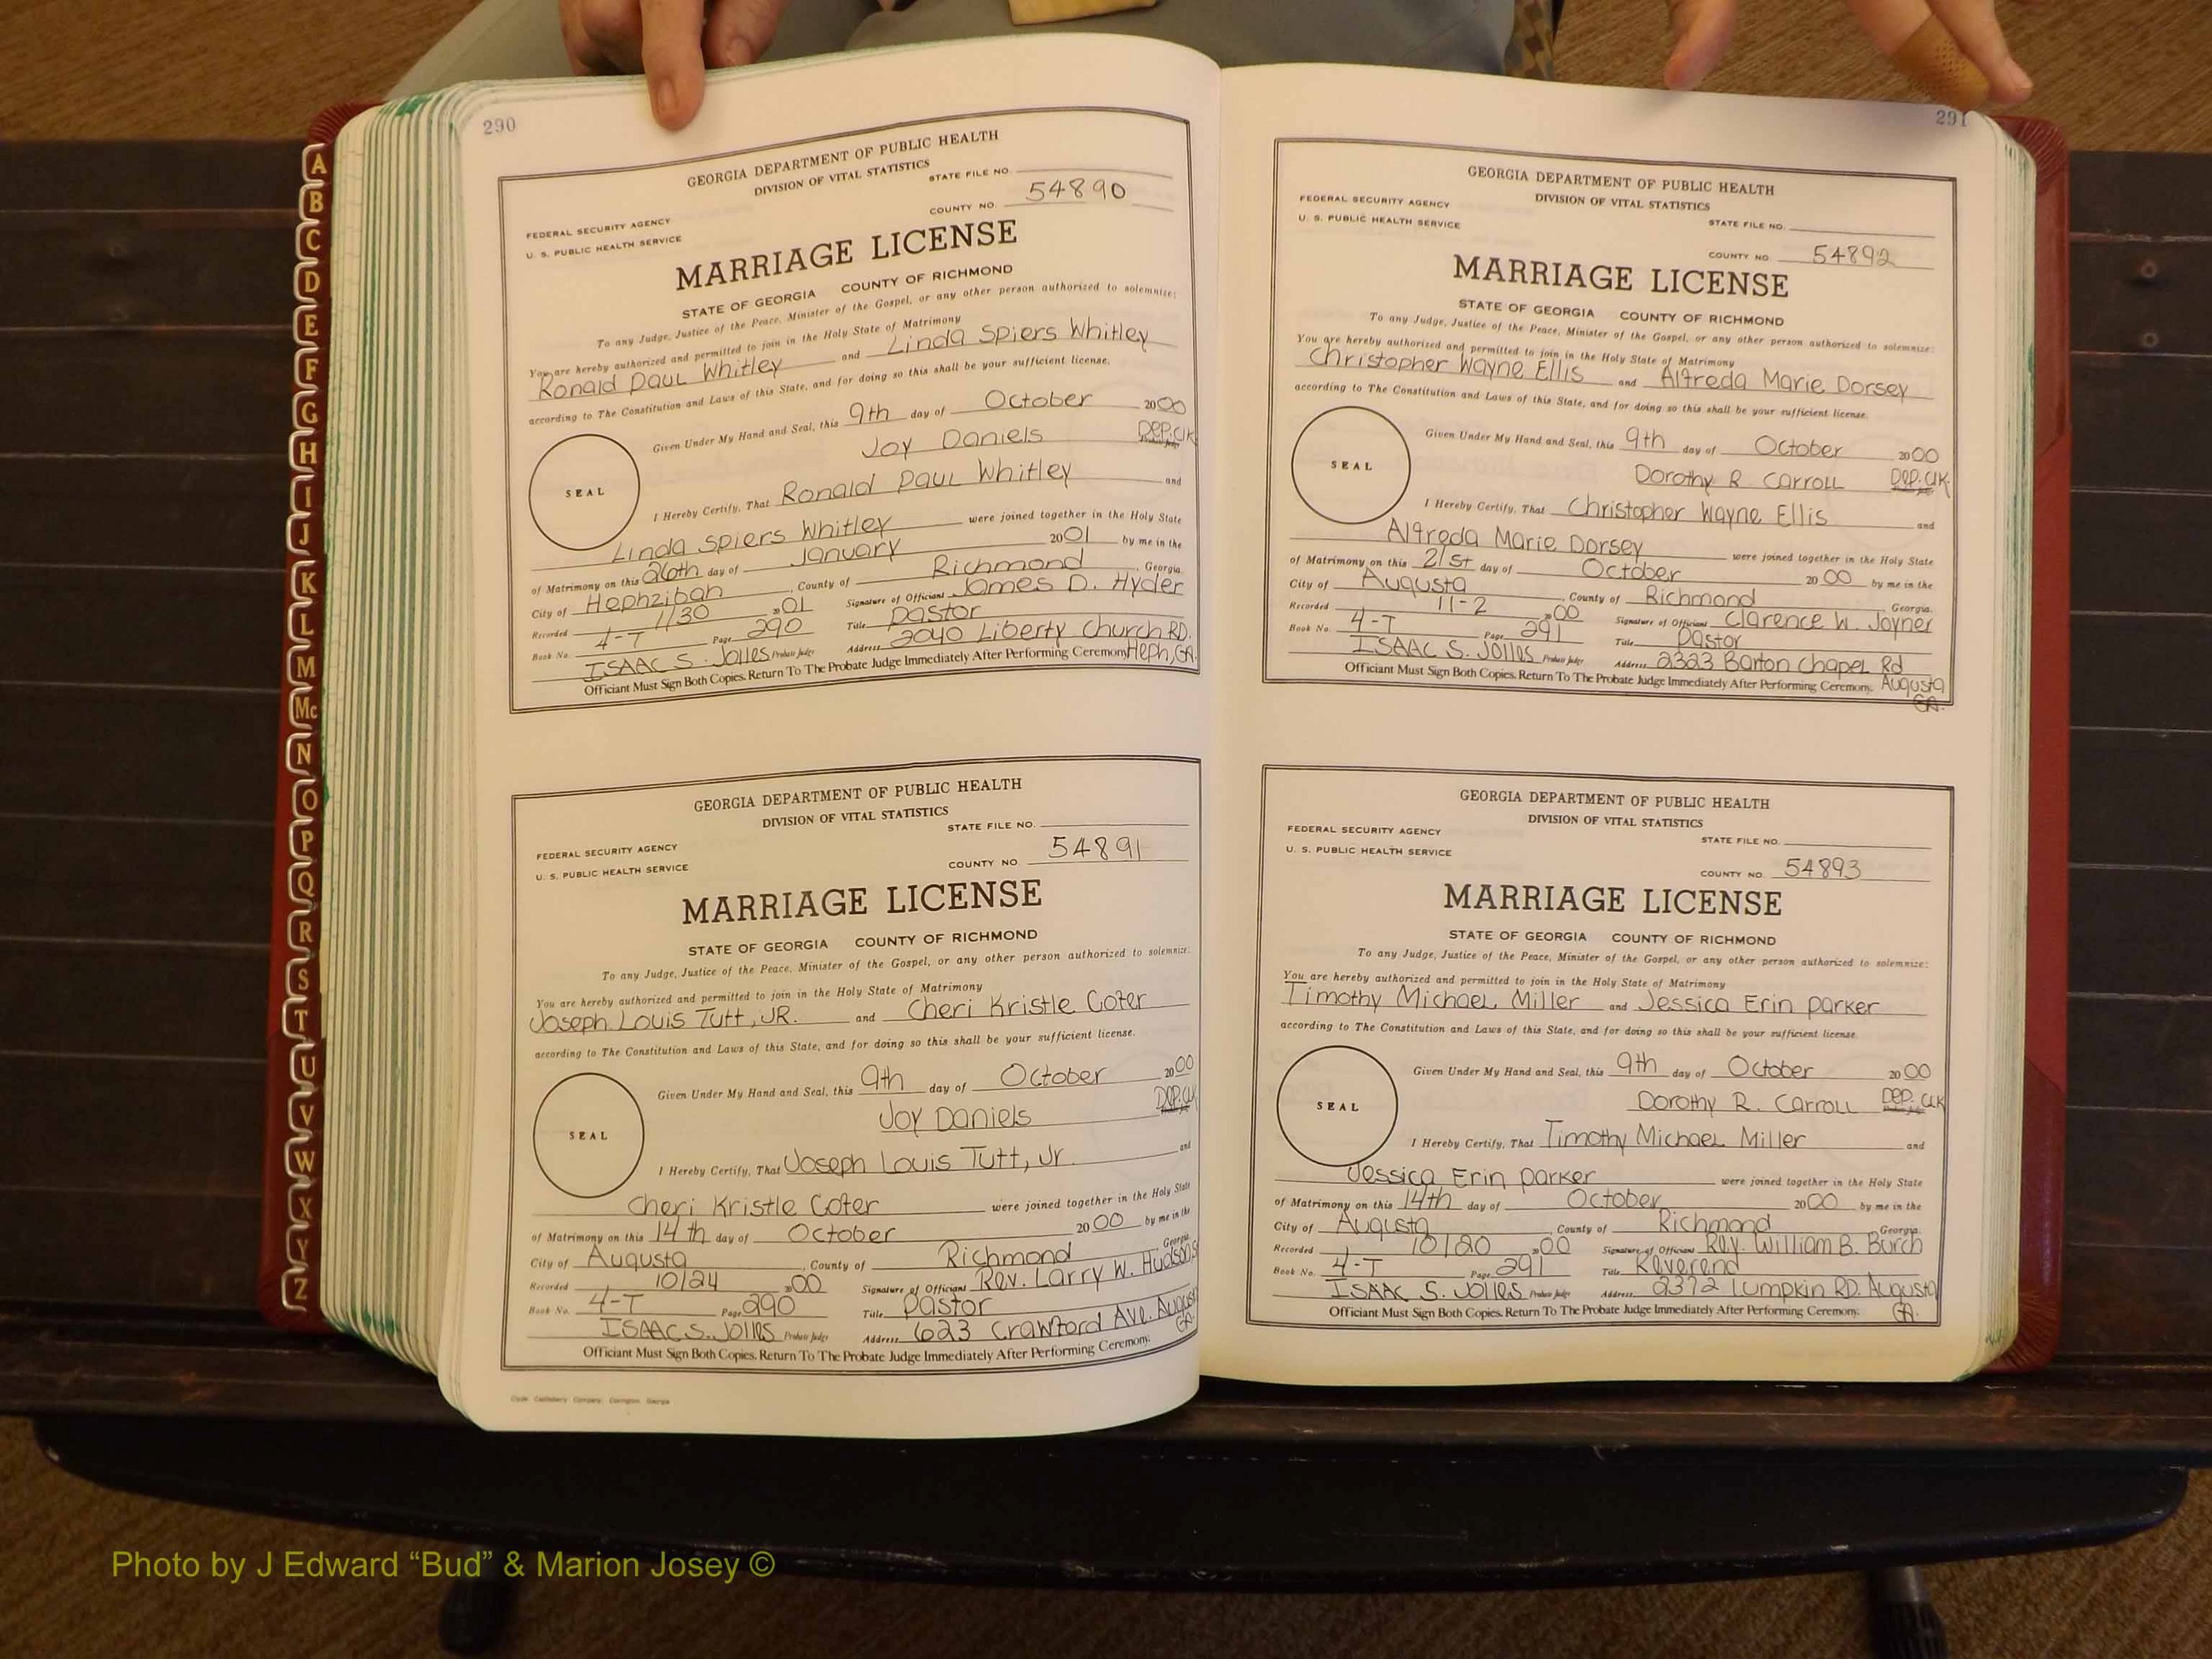 A
B
C
D
E
F
G
H
I
J
K
L
M
Mc
N
O
P
Q
R
S
T
U
V
W
X
Y
Z
290
GEORGIA DEPARTMENT OF PUBLIC HEALTH
DIVISION OF VITAL STATISTICS
STATE FILE NO.
FEDERAL SECURITY AGENCY
U. S. PUBLIC HEALTH SERVICE
COUNTY NO. 54890
MARRIAGE LICENSE
STATE OF GEORGIA COUNTY OF RICHMOND
To any Judge, Justice of the Peace, Minister of the Gospel, or any other person authorized to solemnize:
You are hereby authorized and permitted to join in the Holy State of Matrimony
Ronald Paul Whitley and Linda Spiers Whitley
according to The Constitution and Laws of this State, and for doing so this shall be your sufficient license.
Given Under My Hand and Seal, this 9th day of October 2000
Joy Daniels Dep. Clk
SEAL
I Hereby Certify, That Ronald Paul Whitley and
Linda Spiers Whitley were joined together in the Holy State
of Matrimony on this 26th day of January 2001 by me in the
City of Hephzibah, County of Richmond, Georgia.
Recorded 1/30 2001 Signature of Officiant James D. Hyder
Book No. 4-T Page 290 Title Pastor
ISAAC S. Jolles Probate Judge Address 2040 Liberty Church RD. Heph, GA.
Officiant Must Sign Both Copies. Return To The Probate Judge Immediately After Performing Ceremony.
GEORGIA DEPARTMENT OF PUBLIC HEALTH
DIVISION OF VITAL STATISTICS
STATE FILE NO.
FEDERAL SECURITY AGENCY
U. S. PUBLIC HEALTH SERVICE
COUNTY NO. 54891
MARRIAGE LICENSE
STATE OF GEORGIA COUNTY OF RICHMOND
To any Judge, Justice of the Peace, Minister of the Gospel, or any other person authorized to solemnize:
You are hereby authorized and permitted to join in the Holy State of Matrimony
Joseph Louis Tutt, JR. and Cheri Kristle Cofer
according to The Constitution and Laws of this State, and for doing so this shall be your sufficient license.
Given Under My Hand and Seal, this 9th day of October 2000
Joy Daniels Dep. Clk
SEAL
I Hereby Certify, That Joseph Louis Tutt, Jr. and
Cheri Kristle Cofer were joined together in the Holy State
of Matrimony on this 14th day of October 2000 by me in the
City of Augusta, County of Richmond Georgia.
Recorded 10/24 2000 Signature of Officiant Rev. Larry W. Hudson
Book No. 4-T Page 290 Title Pastor
ISAAC S. Jolles Probate Judge Address 623 Crawford Ave. August GA.
Officiant Must Sign Both Copies. Return To The Probate Judge Immediately After Performing Ceremony.
Clyde Castleberry Company, Covington, Georgia
291
GEORGIA DEPARTMENT OF PUBLIC HEALTH
DIVISION OF VITAL STATISTICS
FEDERAL SECURITY AGENCY
U. S. PUBLIC HEALTH SERVICE
STATE FILE NO.
COUNTY NO. 54892
MARRIAGE LICENSE
STATE OF GEORGIA COUNTY OF RICHMOND
To any Judge, Justice of the Peace, Minister of the Gospel, or any other person authorized to solemnize:
You are hereby authorized and permitted to join in the Holy State of Matrimony
Christopher Wayne Ellis and Alfreda Marie Dorsey
according to The Constitution and Laws of this State, and for doing so this shall be your sufficient license.
Given Under My Hand and Seal, this 9th day of October 2000
Dorothy R Carroll Dep. Clk
SEAL
I Hereby Certify, That Christopher Wayne Ellis and
Alfreda Marie Dorsey were joined together in the Holy State
of Matrimony on this 21st day of October 2000 by me in the
City of Augusta, County of Richmond, Georgia.
Recorded 11-2 2000 Signature of Officiant Clarence W. Joyner
Book No. 4-T Page 291 Title Pastor
ISAAC S. Jolles Probate Judge Address 2323 Barton Chapel Rd
Officiant Must Sign Both Copies. Return To The Probate Judge Immediately After Performing Ceremony. Augusta GA.
GEORGIA DEPARTMENT OF PUBLIC HEALTH
DIVISION OF VITAL STATISTICS
FEDERAL SECURITY AGENCY
U. S. PUBLIC HEALTH SERVICE
STATE FILE NO.
COUNTY NO. 54893
MARRIAGE LICENSE
STATE OF GEORGIA COUNTY OF RICHMOND
To any Judge, Justice of the Peace, Minister of the Gospel, or any other person authorized to solemnize:
You are hereby authorized and permitted to join in the Holy State of Matrimony
Timothy Michael Miller and Jessica Erin Parker
according to The Constitution and Laws of this State, and for doing so this shall be your sufficient license.
Given Under My Hand and Seal, this 9th day of October 2000
Dorothy R. Carroll Dep. Clk
SEAL
I Hereby Certify, That Timothy Michael Miller and
Jessica Erin Parker were joined together in the Holy State
of Matrimony on this 14th day of October 2000 by me in the
City of Augusta, County of Richmond Georgia.
Recorded 10/20 2000 Signature of Officiant Rev. William B. Burch
Book No. 4-T Page 291 Title Reverend
ISAAC S. Jolles Probate Judge Address 2372 Lumpkin RD. Augusta
Officiant Must Sign Both Copies. Return To The Probate Judge Immediately After Performing Ceremony. GA.
Photo by J Edward “Bud” & Marion Josey ©